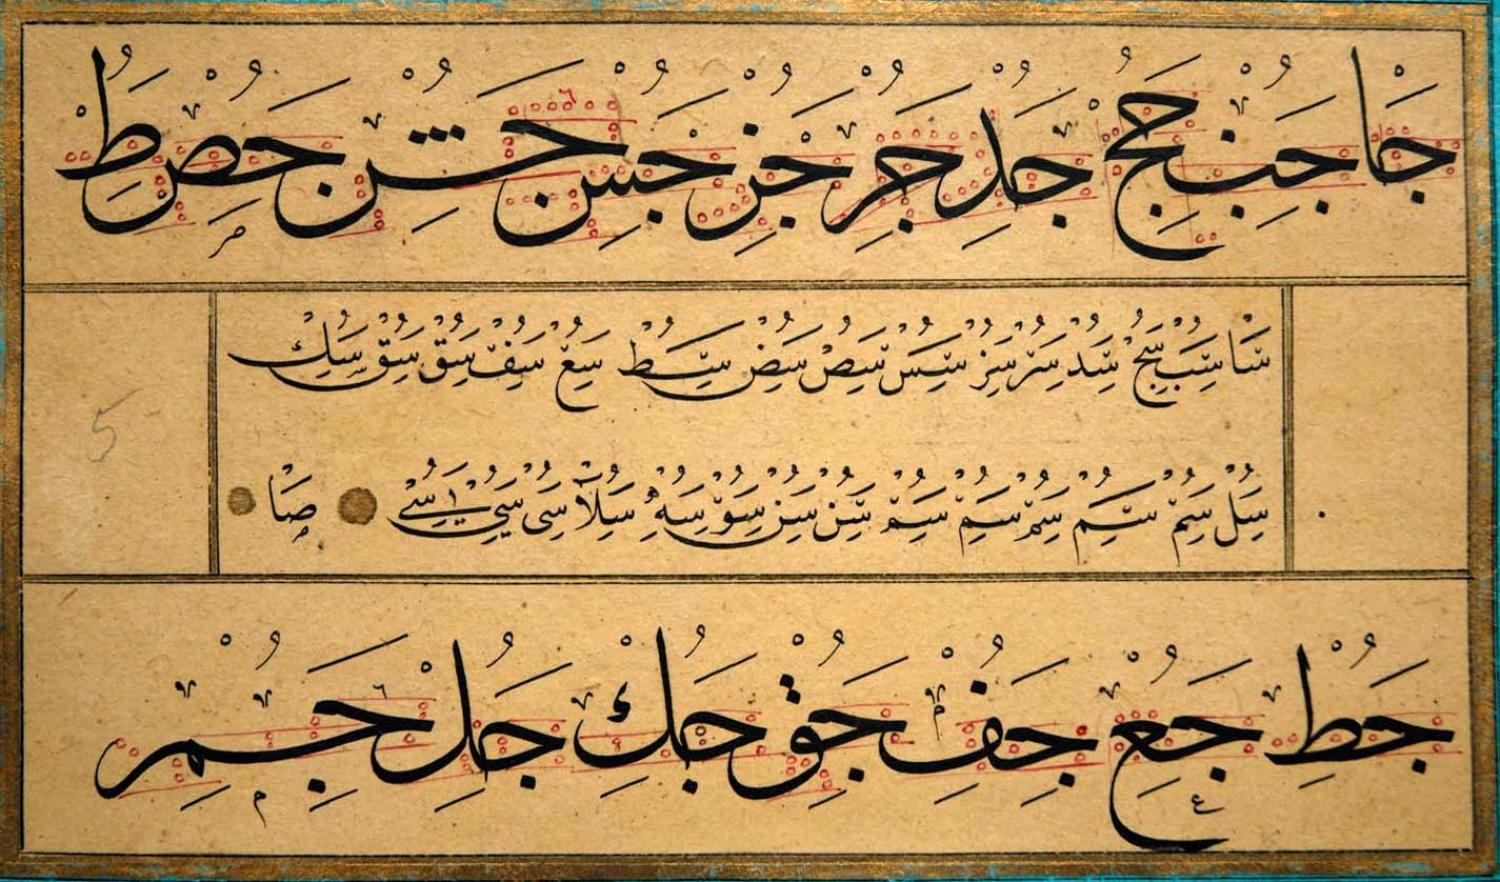 جا جب جج جد جر جز جس جش جص ط
سا سب سج سد سر سز سس سص سض سط سع سف سق سق سك
5
سل سم سم سم سم سم سن سن سو سه سلا سى سى سے صا
جط جع جف جق جك جل جم